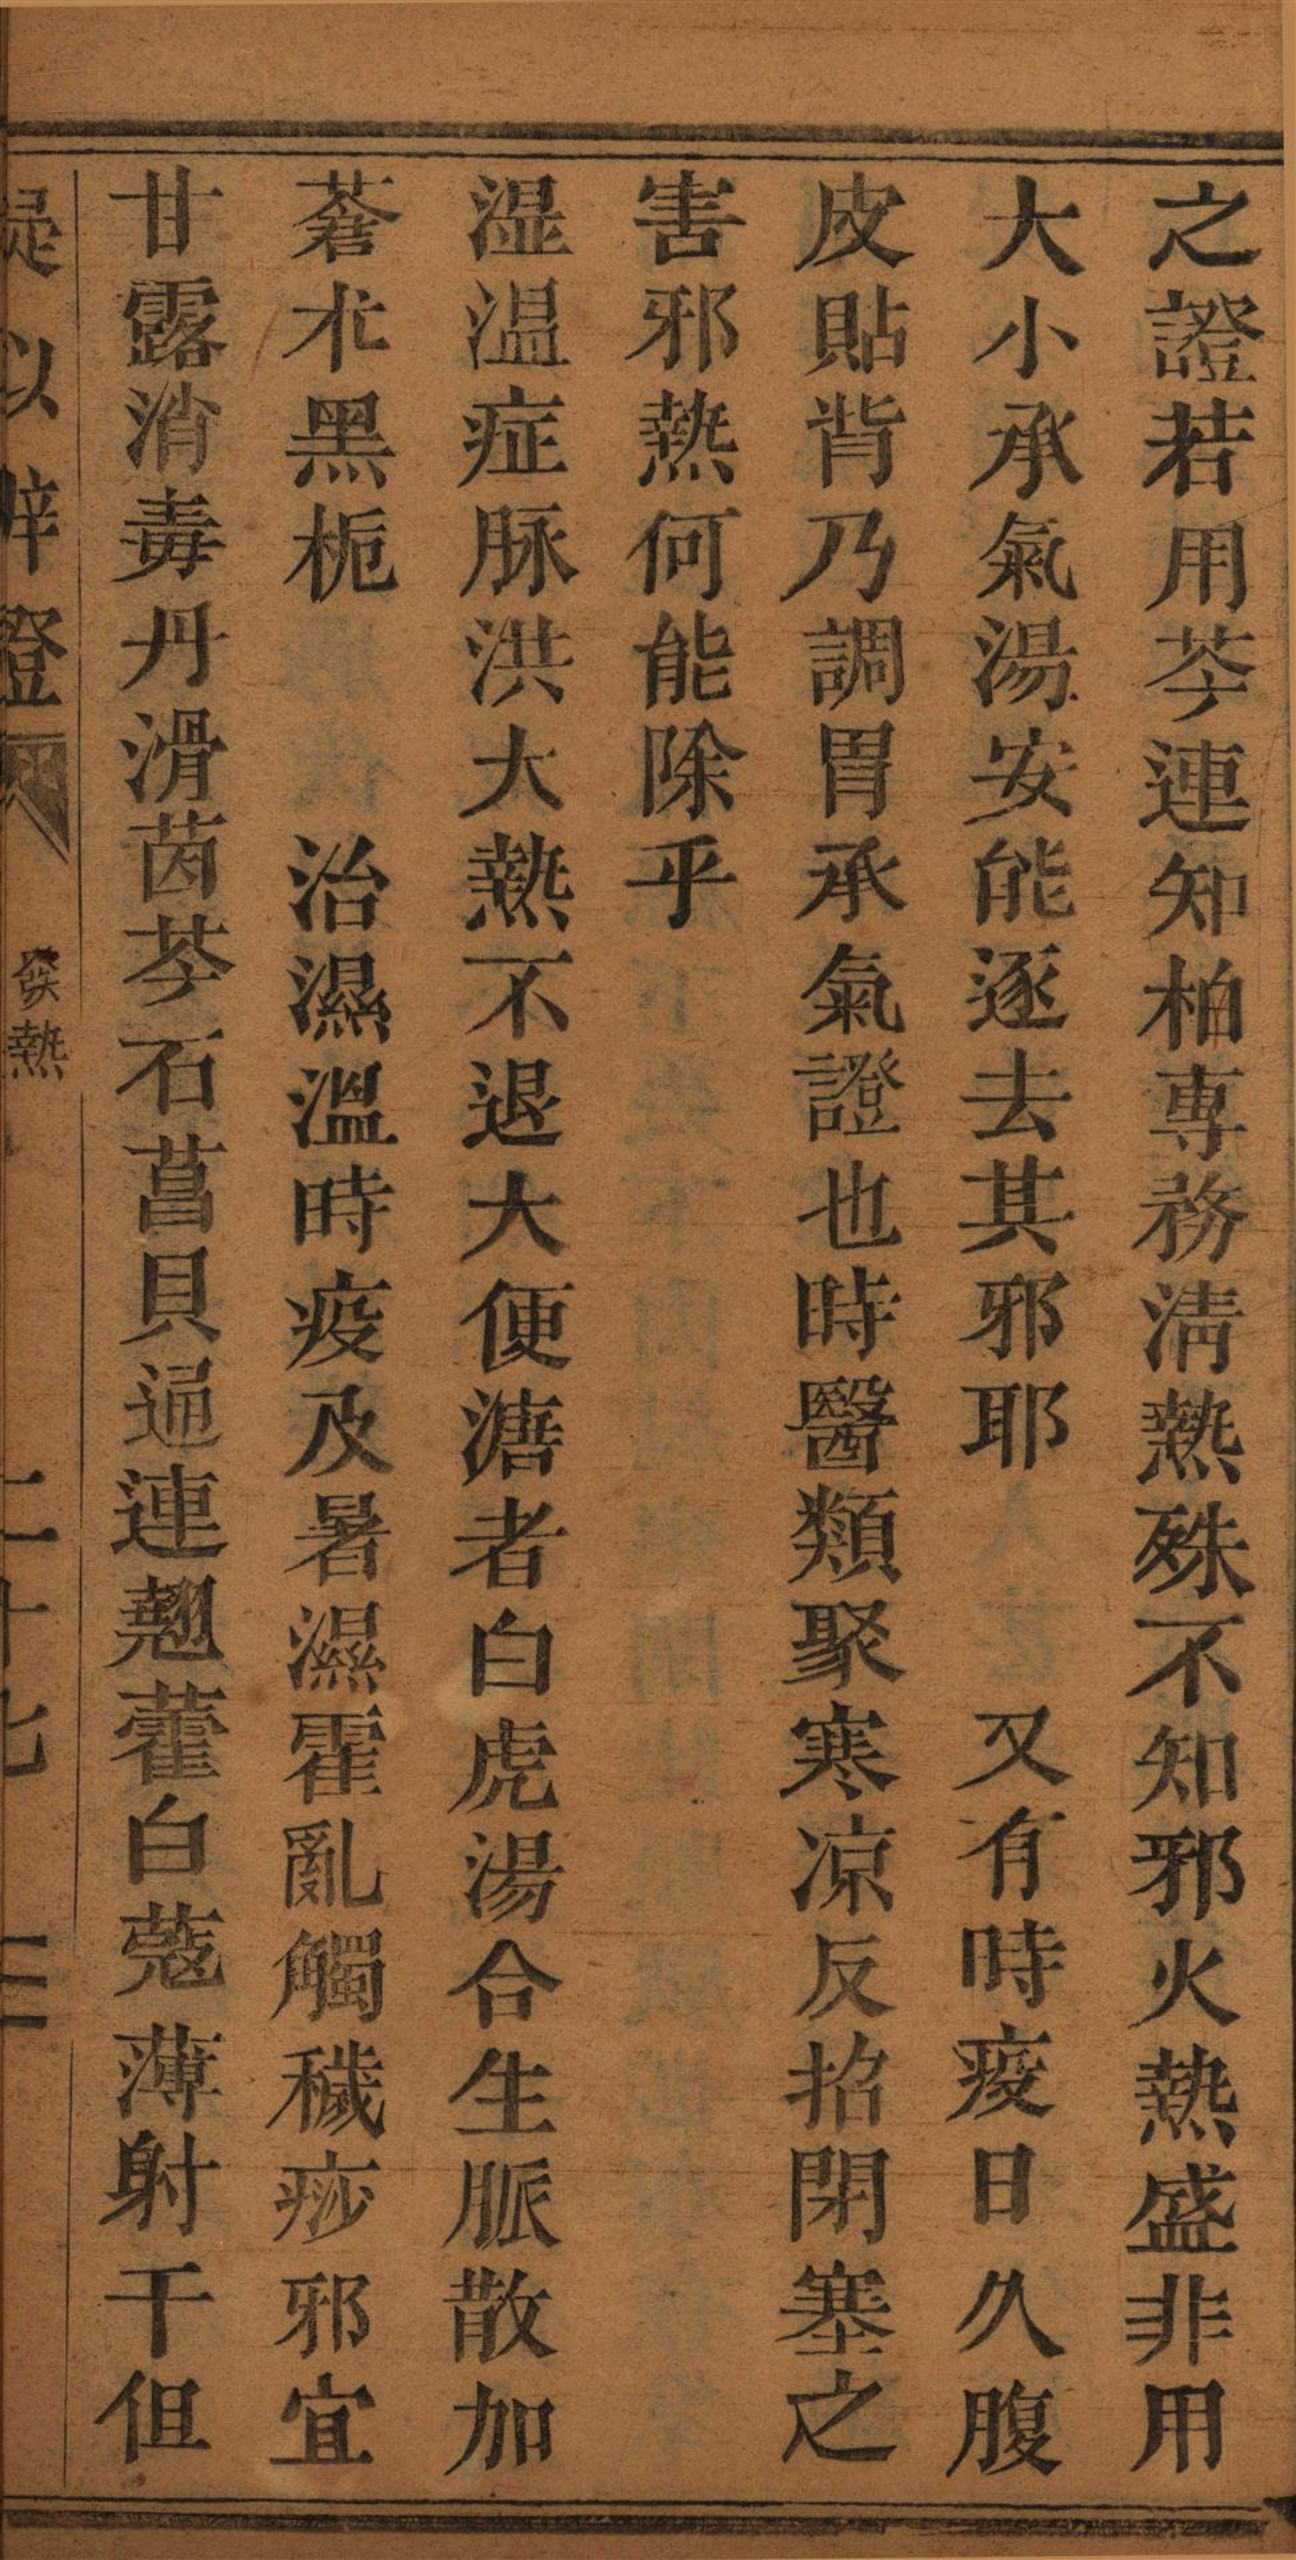 之證若用芩連知柏專務淸熱殊不知邪火熱盛非用
大小承氣湯安能逐去其邪耶　又有時疫日久腹
皮貼背乃調胃承氣證也時醫類聚寒凉反招閉塞之
害邪熱何能除乎
湿温症脉洪大熱不退大便溏者白虎湯合生脈散加
蒼朮黑栀　治濕溫時疫及暑濕霍亂觸穢痧邪宜
甘露消毒丹滑茵芩石菖貝通連翹藿白蔻薄射干但
辟證
熱
二十七